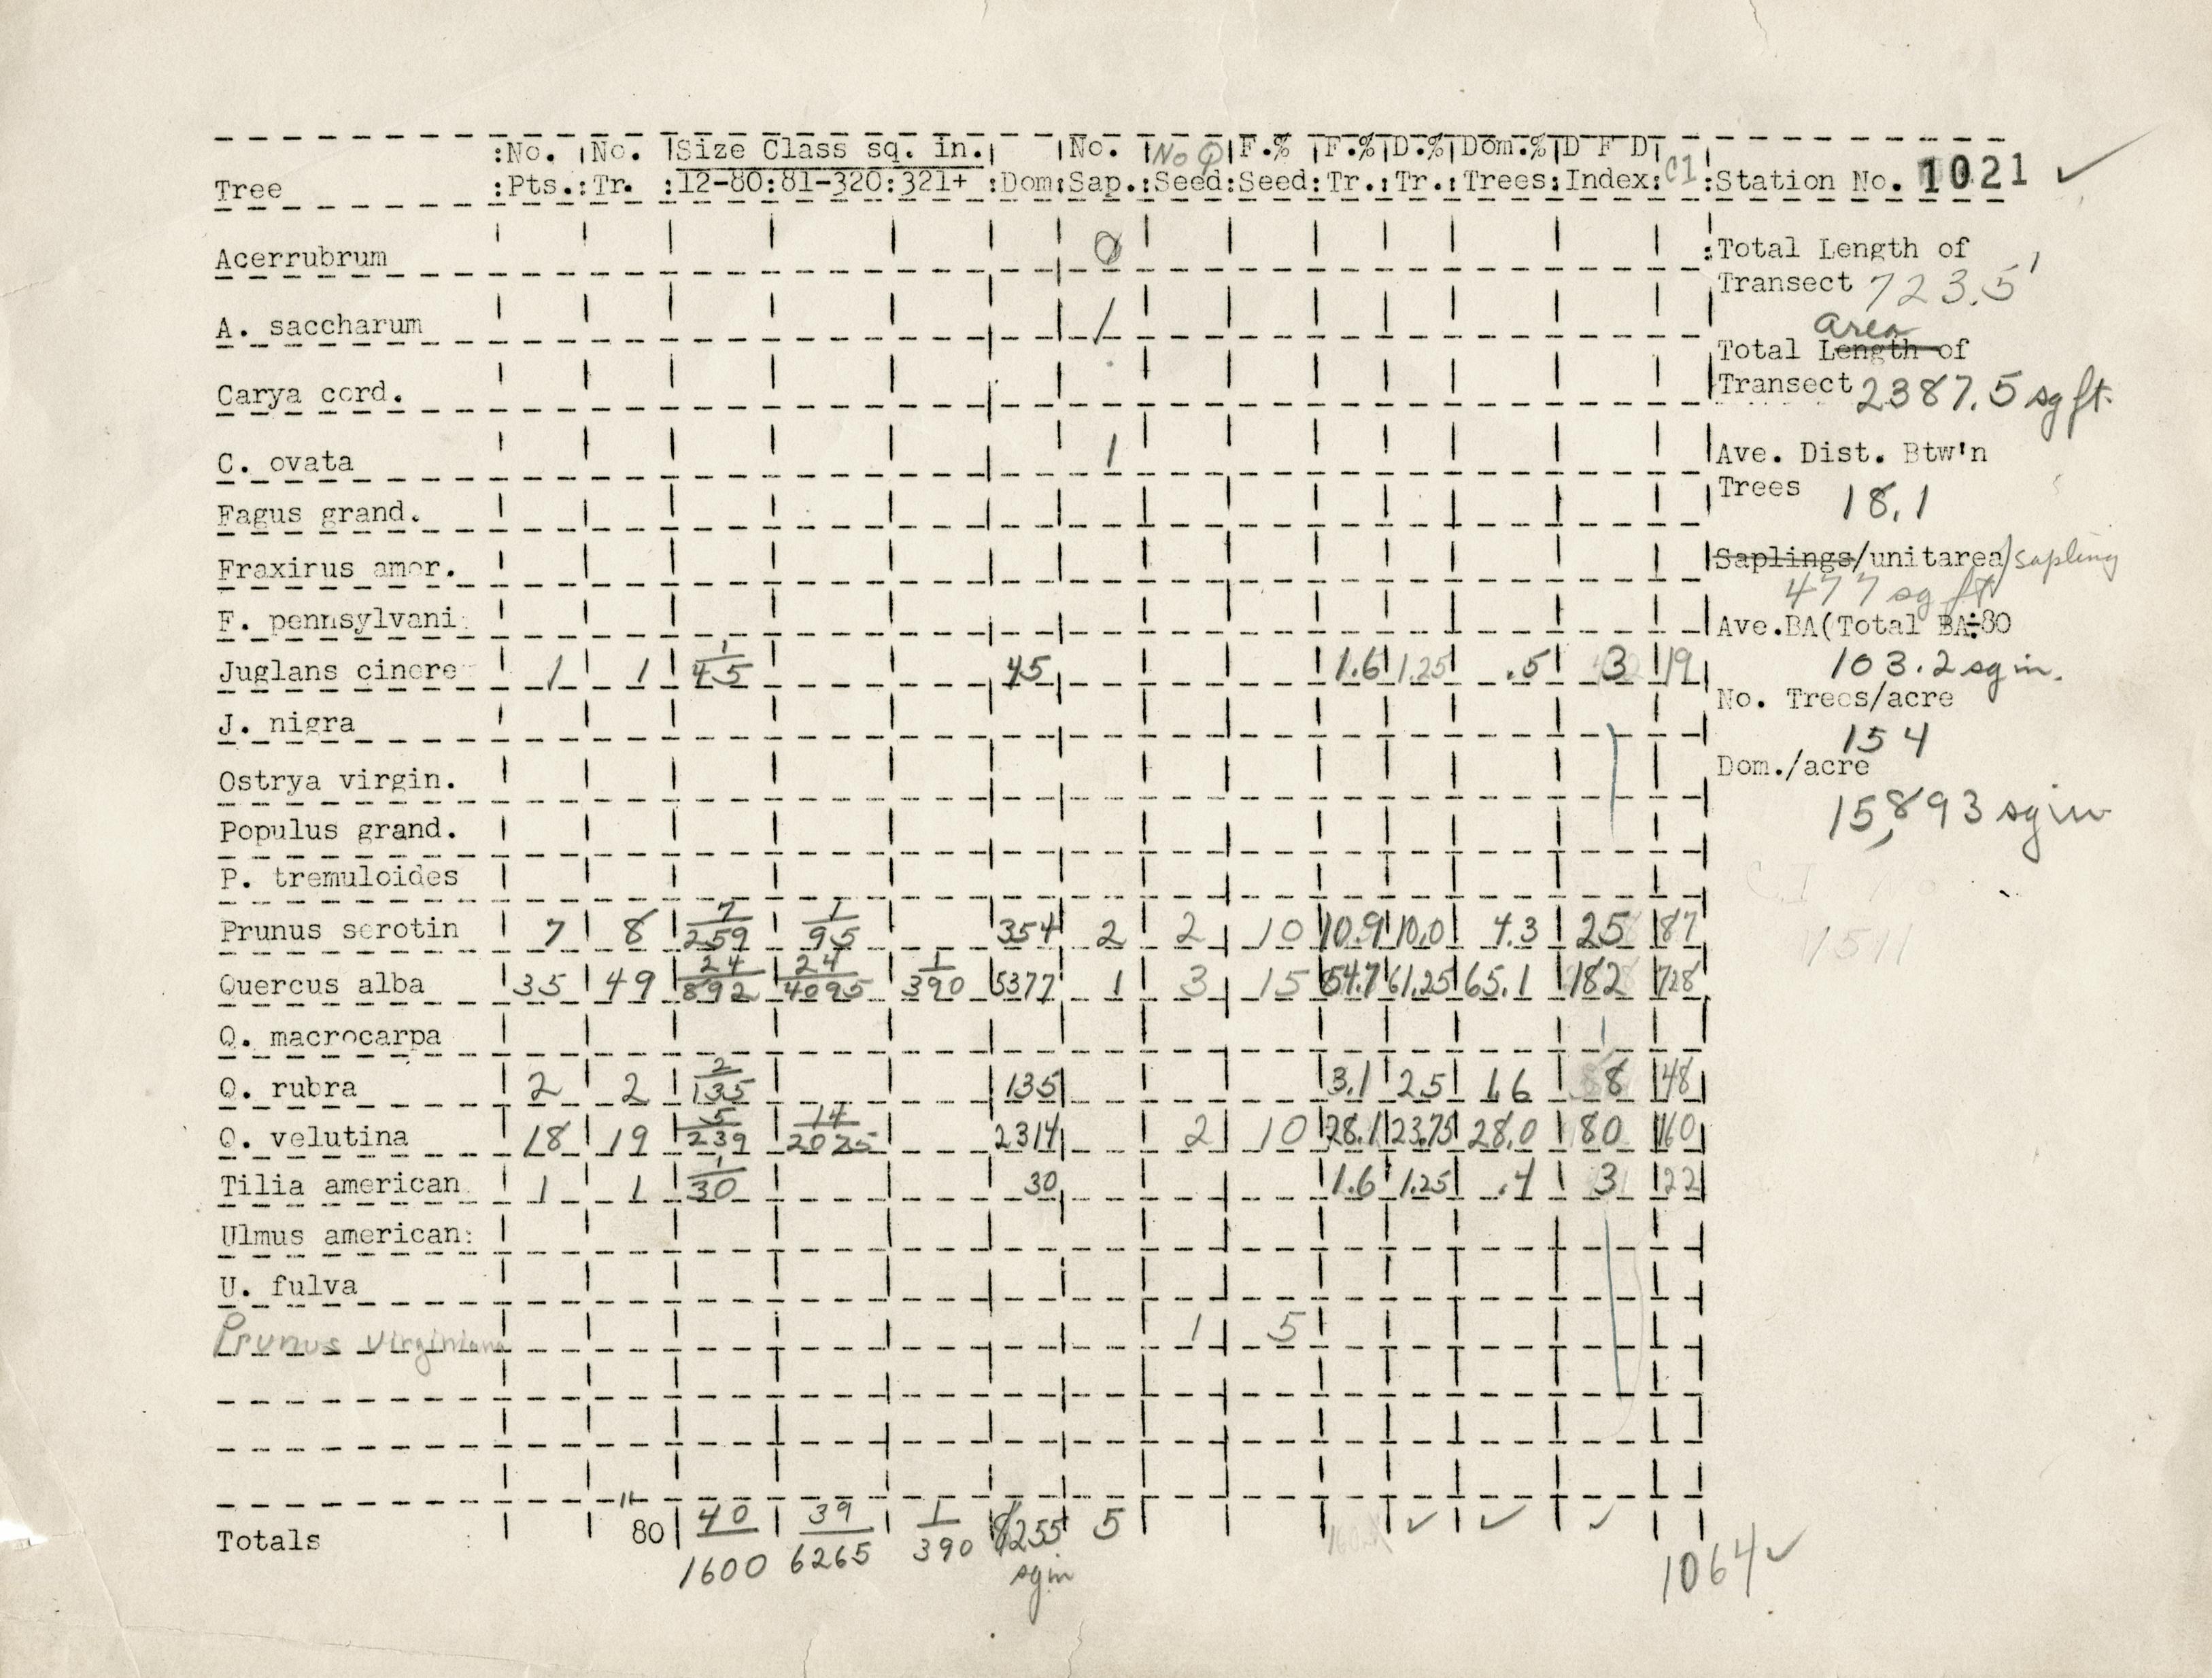 :No. :No. Size Class sq. in. No. No Q F.% F.% D.% Dom.% D F D
Tree :Pts.:Tr. :12-80:81-320:321+ :Dom:Sap.:Seed:Seed:Tr.:Tr.:Trees:Index: C1 :Station No. 1021 ✓
Acerrubrum 0
:Total Length of
Transect 723.5'
A. saccharum /
area
Total Length of
Transect 2387.5 sq ft.
Carya cord.
C. ovata 1
Ave. Dist. Btw'n
Trees 18.1
Fagus grand.
Fraxirus amer.
Saplings/unitarea/sapling
477 sq ft
F. pennsylvani
Ave.BA(Total BA÷80
103.2 sq in.
Juglans cinere 1 1 1/45 45 1.6 1.25 .5 3 19
No. Trees/acre
154
J. nigra
Dom./acre
15,893 sq in
Ostrya virgin.
Populus grand.
P. tremuloides
Prunus serotin 7 8 7/259 1/95 354 2 2 10 10.9 10.0 4.3 25 87
1511
Quercus alba 35 49 24/892 24/4095 1/390 5377 1 3 15 54.7 61.25 65.1 182 728
Q. macrocarpa
Q. rubra 2 2 2/135 135 3.1 2.5 1.6 8 48
Q. velutina 18 19 5/239 14/2025 2314 2 10 28.1 23.75 28.0 80 160
Tilia american 1 1 1/30 30 1.6 1.25 .4 3 22
Ulmus american:
U. fulva
Prunus virginiana 1 5
Totals : 80 40/1600 39/6265 1/390 8255 sq in 5 ✓ ✓ ✓ 1064 ✓